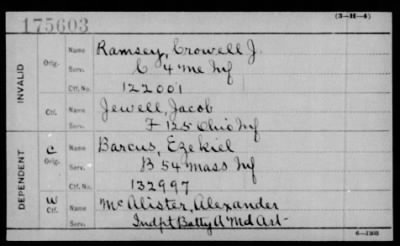 175603
(3-H-4)
INVALID
Orig.
Name Ramsey, Crowell J.
Serv. C 4 Me Inf
Ctf. No. 122001
Ctf.
Name Jewell, Jacob
Serv. F 125 Ohio Inf
DEPENDENT
C
Orig.
Name Barcus, Ezekiel
Serv. B 54 Mass Inf
Ctf. No. 132997
W
Ctf.
Name McAlister, Alexander
Serv. Indpt Batty A Md Art